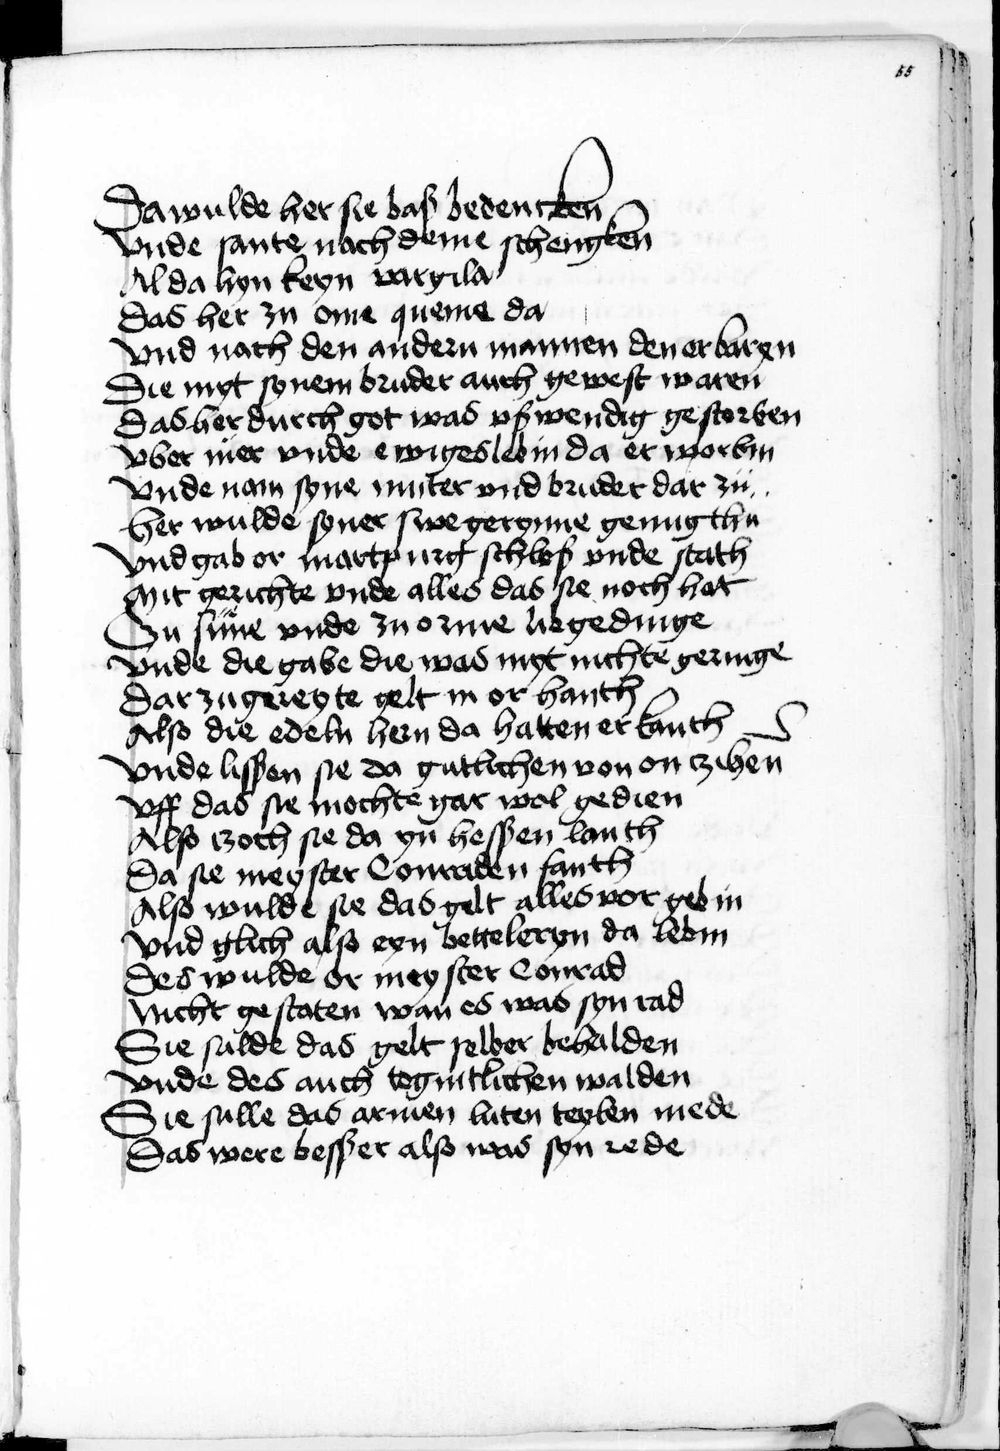 55
Da wulde her sie baß bedencken
vnde sante nach deme schengken
Al da hyn keyn vargila
das her zu ome queme da
vnd nach den andern mannen den erbaren
Die myt synem bruder auch gewest waren
das her durch got was vßwendig gestorben
vber mer vnde ewiges lebin da erworbin
vnde nam syne muter vnd bruder dar zü
her wulde syner swegerynne genug thu
vnd gab or martpurg schloß vnde stath
Mit gerichte vnde alles das sie noch hat
Zu süne vnde zu orme liegedinge
vnde die gabe die was myt nichte geringe
dar zu gereyte gelt in or hanth
Also die edeln hern da hatten erkanth
vnde lissen sie da gutlichen von on czihen
vff das sie mochte gar wol gedien
Also czoch sie da yn hessen lanth
Da sie meyster Conraden fanth
Also wulde sie das gelt alles vor gebin
vnd glich also eyn betteleryn da lebin
des wulde or meyster Conrad
nicht gestaten wan es was syn rad
Sie sulde das gelt selber behalden
vnde des auch togintlichen walden
Sie sulle das armen luten teylen mede
Das were besser also was syn rede